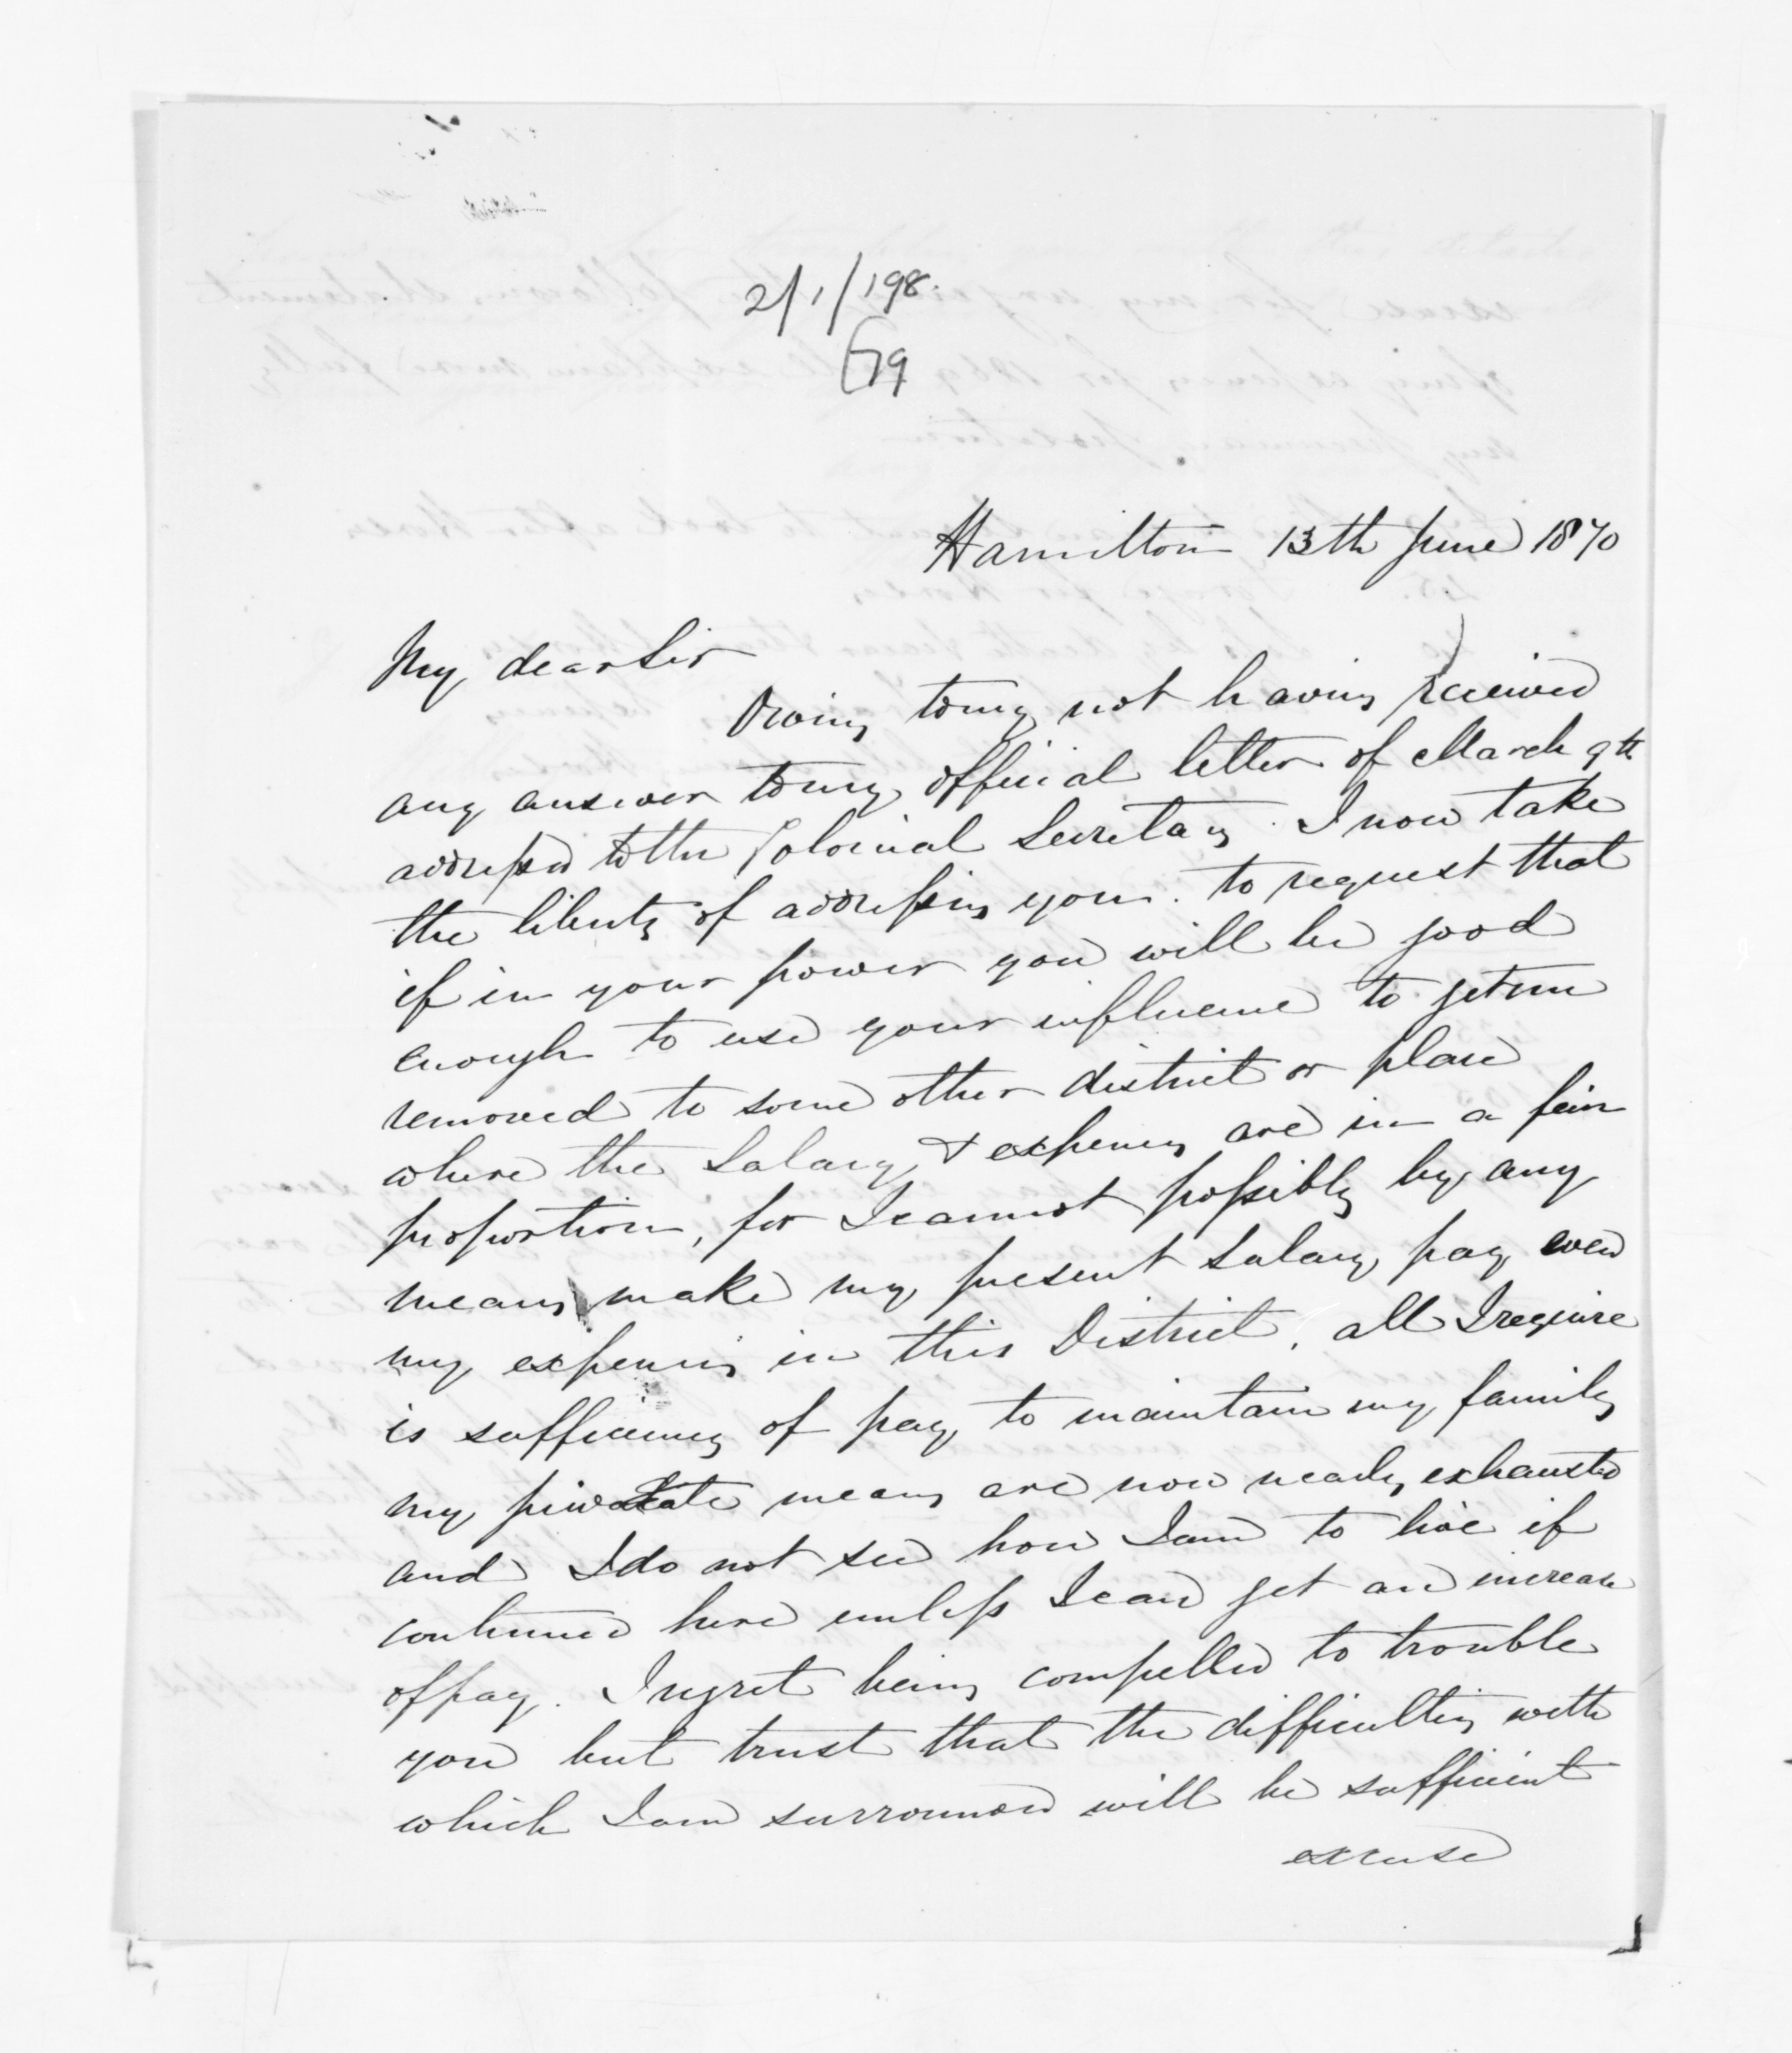 2/1/198.
G79
Hamilton 13th June 1870
My dear Sir
Owing to my not having received
any answer to my official letter of March 9th
addressed to the Colonial Secretary. I now take
the liberty of addressing you. to request that
if in your power you will be good
enough to use your influence to get me
removed to some other district or place
where the Salary & expenses are in a fair
proportion, for I cannot possibly by any
means make my present Salary pay even
my expenses in this District. all I require
is sufficiency of pay to maintain my family
my private means are now nearly exhausted
and I do not see how I am to live if
continued here unless I can get an increase
of pay. I regret being compelled to trouble
you but trust that the difficulties with
which I am surrounded will be sufficient
excuse